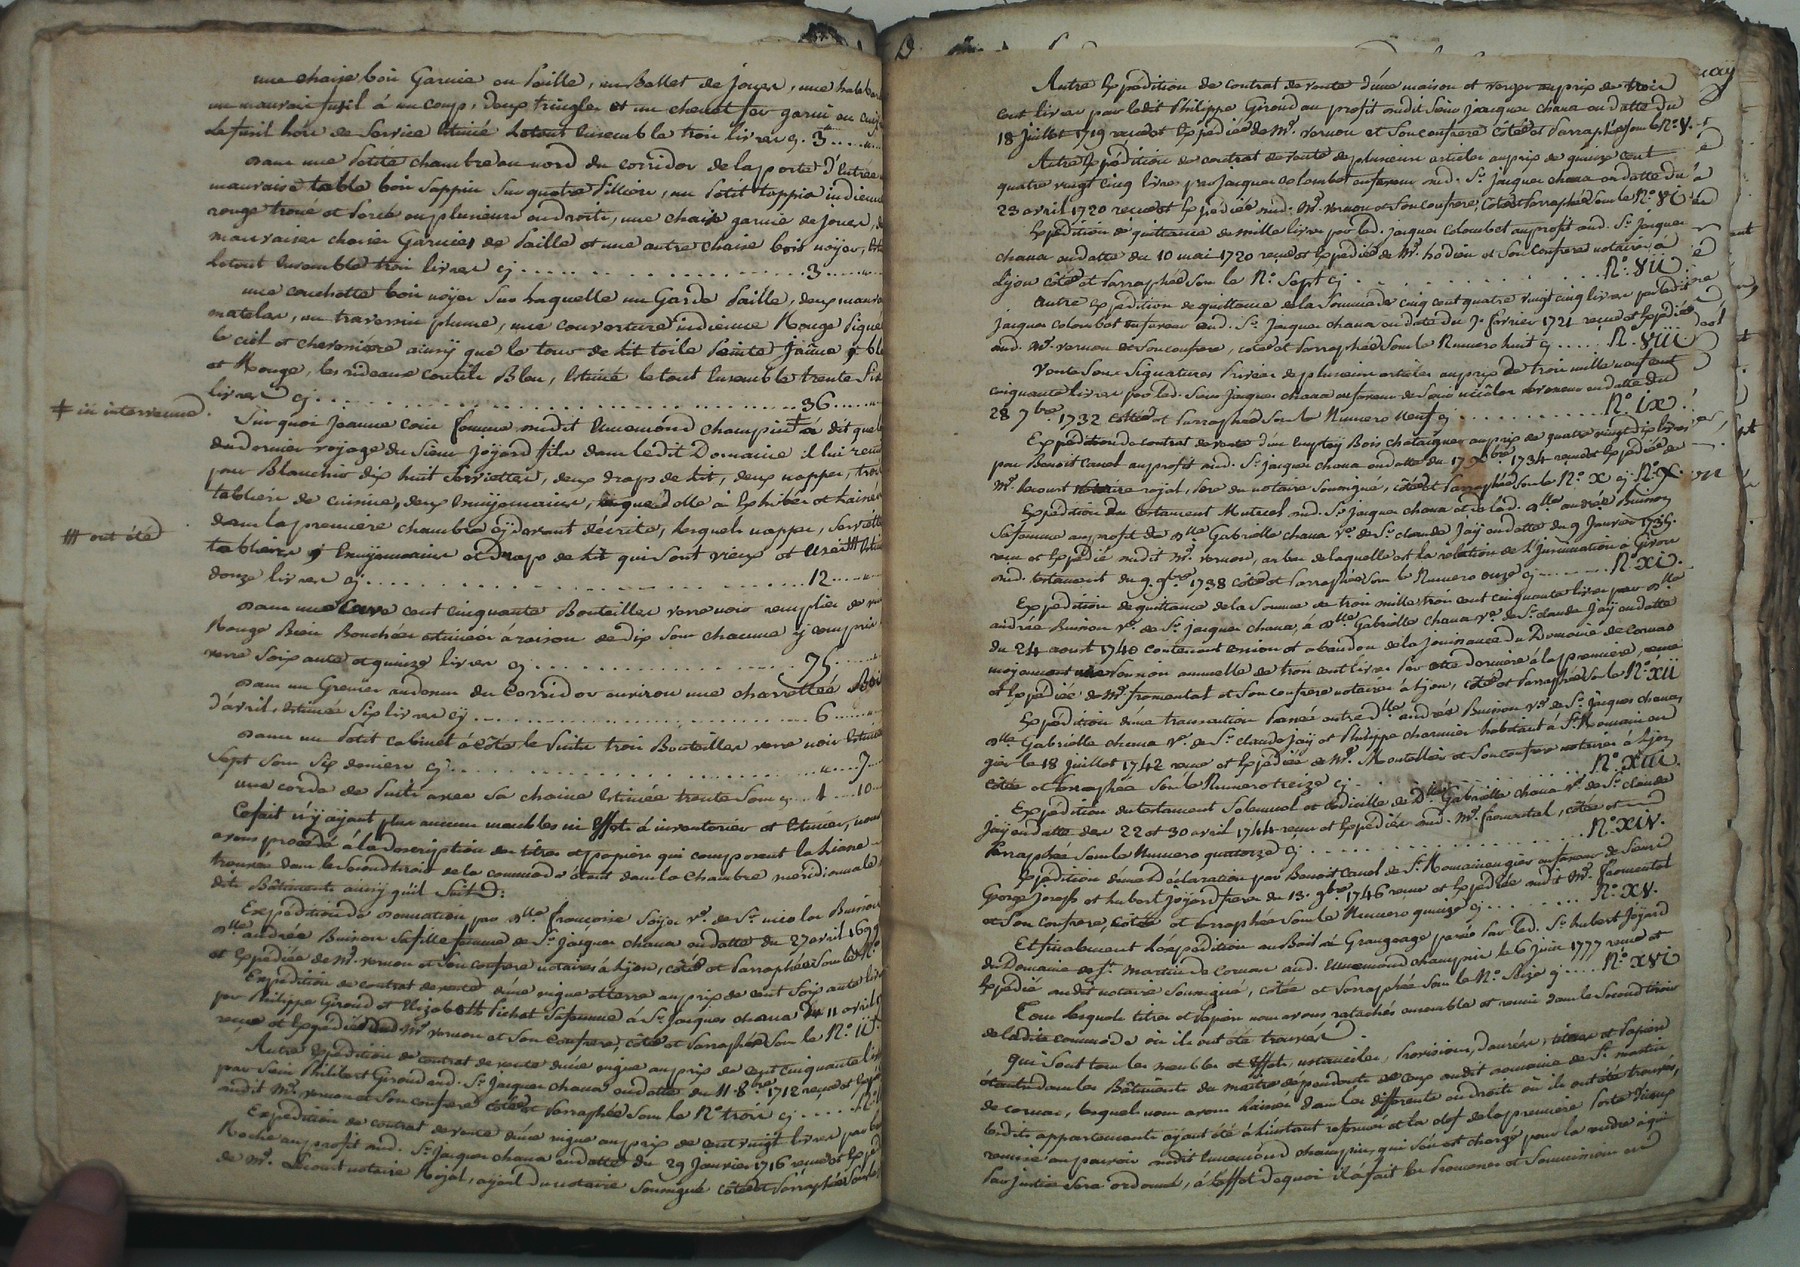 une chaise bois Garnie en Paille, un Ballet de joncs, une
un mauvais fusil à un coup, deux tringles et un chenet fer garni en
Le fusil hors de Service Estimé Letout Ensemble trois livres cy. 3
dans une Petite chambre au nord du corridor de la porte D'Entrée
mauvaise table bois Sappin Sur quatre Pilliers, un Petit tappis indienne
rouge troué et Percé en plusieurs endroits, une chaise garnie de joncs,
mauvaises chaises Garnies de Paille et une autre chaise bois noÿer,
Letout Ensemble trois livres cj. 3
une couchette bois noÿer Sur Laquelle un Garde Paille, deux mauvais
matelas, un traversin plume, une couverture indienne Rouge Piqué
le ciel et ainsÿ que le tour de Lit toile Peinte Jaune
et Rouge, les rideaux coutils Bleu, Estimé le tout Ensemble trente Six
livres cj. 36
# ici intervenue.
Sur quoi Jeanne femme dudit Ennemond Champin # a dit que
au dernier voyage du Sieur Joÿard fils dans ledit Domaine il lui
pour Blanchir dix huit Serviettes, deux draps de Lit, deux nappes, trois
tabliers de cuisine, deux Essuÿemains, Lequel Elle a Exhibés et Laissés
dans la premiere chambre cÿ devant décrite, Lesquels nappes, Serviettes
### ont été
tabliers Essuÿemains et Draps de Lit qui Sont vieux et Usés ###
douze livres cj. 12
dans une Cave cent cinquante Bouteilles verre noir remplies de vin
Rouge Bien Bouchées estimées à raison de dix Sous chacune cÿ compris
verre Soixante et quinze livres cj. 75
dans un Grenier au dessus du Corridor environ une charrettée Bois
d'avril, estimée Six livres cÿ. 6
dans un Petit cabinet à côté le Suite trois Bouteilles verre noir Estimé
Sept Sous Six deniers cj. 7
une corde de Puits avec Sa chaine Estimée trente Sous cj. 1 10
Cefait n'ÿ aÿant plus aucuns meubles ni Effets à inventorier et Estimer, nous
avons procédé à la description des titres et papiers qui composent la Liasse
trouvée dans le Second tiroir de la commode étant dans la Chambre méridionale
dits Bâtiments ainsÿ qu'il Suit:
Expédition de donnation par dlle françoise ve de Sr nicolas Buisson
dlle andrée Buisson Sa fille femme de Sr Jacques chana en datte du 27 avril 1699
et Expédiée de Me. vernon et Son confrere notaires à Lÿon, côtée et Parraphée Sous le No
Expédition de contrat de vente d'une vigne et terre au prix de cent Soixante livres
par Philippe Giroud et Elizabeth Pichat Sa femme à Sr Jacques chana du 11 avril
recue et Expédiée dud Me. vernon et Son Confrere, côtée et Parraphée Sous le No. ii
Autre Expédition de contrat de vente d'une vigne au prix de cent cinquante livres
par Sieur Philibert Giroud aud. Sr Jacques chana en datte du 11 8bre 1712 recue et Expédiée
audit Me. vernon et Son confrere côtée et Parraphée Sous le No. trois cj.
Expédition de contrat de vente d'une vigne au prix de cent vingt livres par
Roche au profit aud. Sr Jacques chana en datte du 29 Janvier 1716 recue et Expédiée
de Me. Lecourt notaire Roÿal, aÿeul du notaire Soussigné côtée et Parraphée Sous le
Autre Expédition de contrat de vente d'une maison et verger au prix de trois
cent livres par ledit Philippe Giroud au profit audit Sieur Jacques chana en datte du
18 Juillet 1719 recue et Expédiée de Me. vernon et Son confrere côtée et Parraphée Sous le No. V.
Autre Expédition de contrat de vente de plusieurs articles au prix de quinze cent
quatre vingt cinq livres par Jacques Colombet en faveur aud. Sr Jacques chana en datte du
23 avril 1720 recue et Expédiée aud. Me. vernon et Son confrere, Côtée et Parraphée Sous le No. VI
Expédition de quittance de mille livres par led. Jacques Colombet au profit aud. Sr Jacques
chana en datte du 10 mai 1720 recue et Expédiée de Me. hodieu et Son Confrere notaires à
Lÿon côtée et Parraphée Sous le No. Sept cj. No. VII.
Autre Expédition de quittance de la Somme de cinq cent quatre vingt cinq livres par ledit
Jacques Colombet en faveur aud. Sr Jacques chana en date du 7 fevrier 1721 recue et Expédiée
aud. Me. vernon et Son confrere, côtée et Parraphée Sous le Numero huit cj. No. VIII
Vente Sous Signatures Privées de plusieurs articles au prix de trois mille neuf cent
cinquante livres par led. Sieur Jacques chana en faveur de Sieur nicolas en datte du
28 7bre 1732 Côtée et Parraphée Sous le Numero Neuf cj. No. IX.
Expédition de contrat de vente d'un Emplaÿ Bois chataigner au prix de quatre vingt dix livres
par Benoit Canel au profit aud. Sr Jacques chana en datte du 17 Xbre 1734 recue et Expédiée de
Me Lecourt Notaire roÿal, Pere du notaire Soussigné, côtée et Parraphée Sous le No. X cj No. X
Expédition du testament Mutuel aud. Sr Jacques chana et de lad. dlle andrée Buisson
Sa femme au profit de dlle Gabrielle chana ve de Sr claude Jaÿ en datte du 9 Janvier 1735.
recu et Expédié audit Me. vernon, au bas de laquelle est la relation de l'Insinuation à Givors
aud. testament du 9 9bre 1738 côtée et Parraphée Sous le Numero onze cj. No. XI.
Expédition de quittance de la Somme de trois mille trois cent cinquante livres par dlle
andrée Buisson Ve. de Sr. Jacques chana, à dlle Gabrielle chana ve de Sr. claude Jaÿ en datte
du 24 aoust 1740 contenant cession et abandon de la jouissance du Domaine de Cornas
moÿennant une Pension annuelle de trois cent livres Par cette derniere à la premiere, recue
et Expédiée de Me. fromental et Son confrere notaires à Lÿon, côtée et Parraphée Sous le No. XII
Expédition d'une transaction Passée entre dlle andrée Buisson ve de Sr. Jacques chana,
dlle Gabrielle chana ve. de Sr. claude Jaÿ et Philippe charmier habitant à St Romain en
gier le 18 Juillet 1742 recue et Expédiée de Me. Montellier et Son confrere notaires à Lÿon
Côtée et Parraphée Sous le Numero treize cj. No. XIII.
Expédition du testament Solemnel et codicille de Dlle Gabrielle chana ve de Sr. claude
Jaÿ en datte des 22 et 30 avril 1744 recus et Expédiés aud. Me. fromental, côtée et
Parraphée Sous le Numero quatorze cj. No. XIV.
Expédition d'une Déclaration par Benoit Canel de St Romain en gier en faveur de Sieurs
George Joseph et hubert Joÿard freres du 13. 9bre. 1746 recue et Expédiée audit Me. fromental
et Son Confrere, côtée et Parraphée Sous le Numero quinze cj. No. XV.
Et finalement L'expédition au Bail à Grangeage passé Par led. Sr. hubert Joÿard
du Domaine de St. Martin de Cornas aud. Ennemond Champin le 6 juin 1777 recue et
Expédié audit notaire Soussigné, côtée et Parraphée Sous le No. Seize cj. No. XVI
Tous lesquels titres et papiers nous avons ratachés ensemble et remis dans le Second tiroir
de ladite commode où ils ont été trouvés.
Qui Sont tous les meubles et Effets, ustanciles, Provisions, Denrées, titres et Papiers
étants dans les Bâtiments du maitre dépendants de Ceux audit domaine de St. martin
de cornas, lesquels nous avons Laissés dans les differents endroits où ils ont été trouvés,
lesdits appartements aÿant été à L'instant refermés et la clef de la premiere Porte D'iceux
remise au pouvoir audit Ennemond Champin, qui S'en est chargé pour la rendre à qui
Par justice Sera ordonné, à L'effet de quoi il a fait les Promesses et Soumissions en